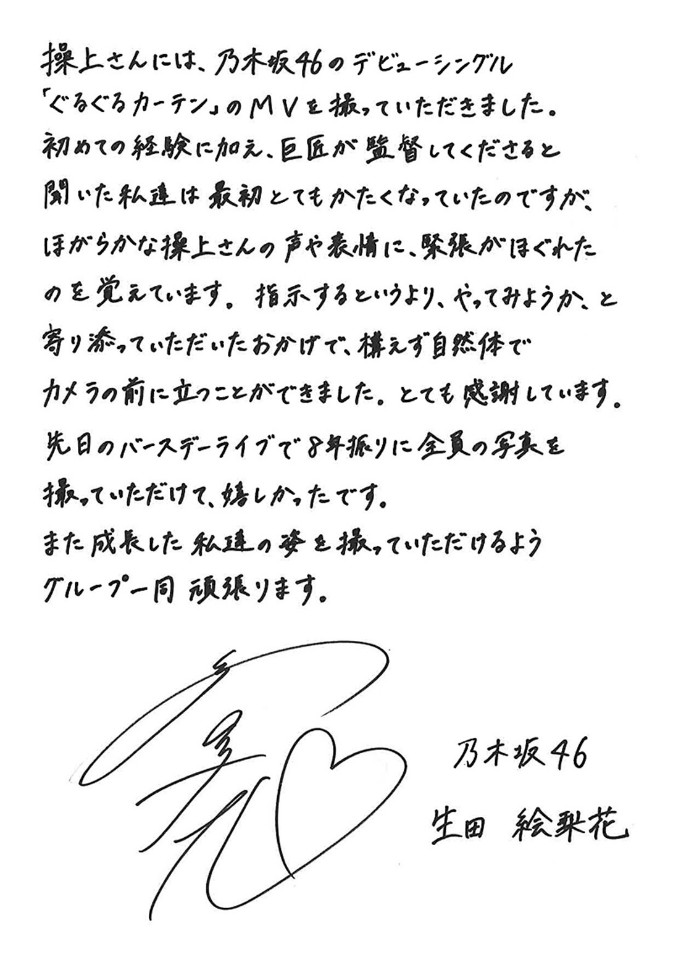 操上さんには、乃木坂46のデビューシングル
「ぐるぐるカーテン」のMVを撮っていただきました。
初めての経験に加え、巨匠が監督してくださると
聞いた私達は最初とてもかたくなっていたのですが、
ほがらかな操上さんの声や表情に、緊張がほぐれた
のを覚えています。指示するというより、やってみようか、と
寄り添っていただいたおかげで、構えず自然体で
カメラの前に立つことができました。とても感謝しています。
先日のバースデーライブで8年振りに全員の写真を
撮っていただけて、嬉しかったです。
また成長した私達の姿を撮っていただけるよう
グループ一同頑張ります。
乃木坂46
生田 絵梨花